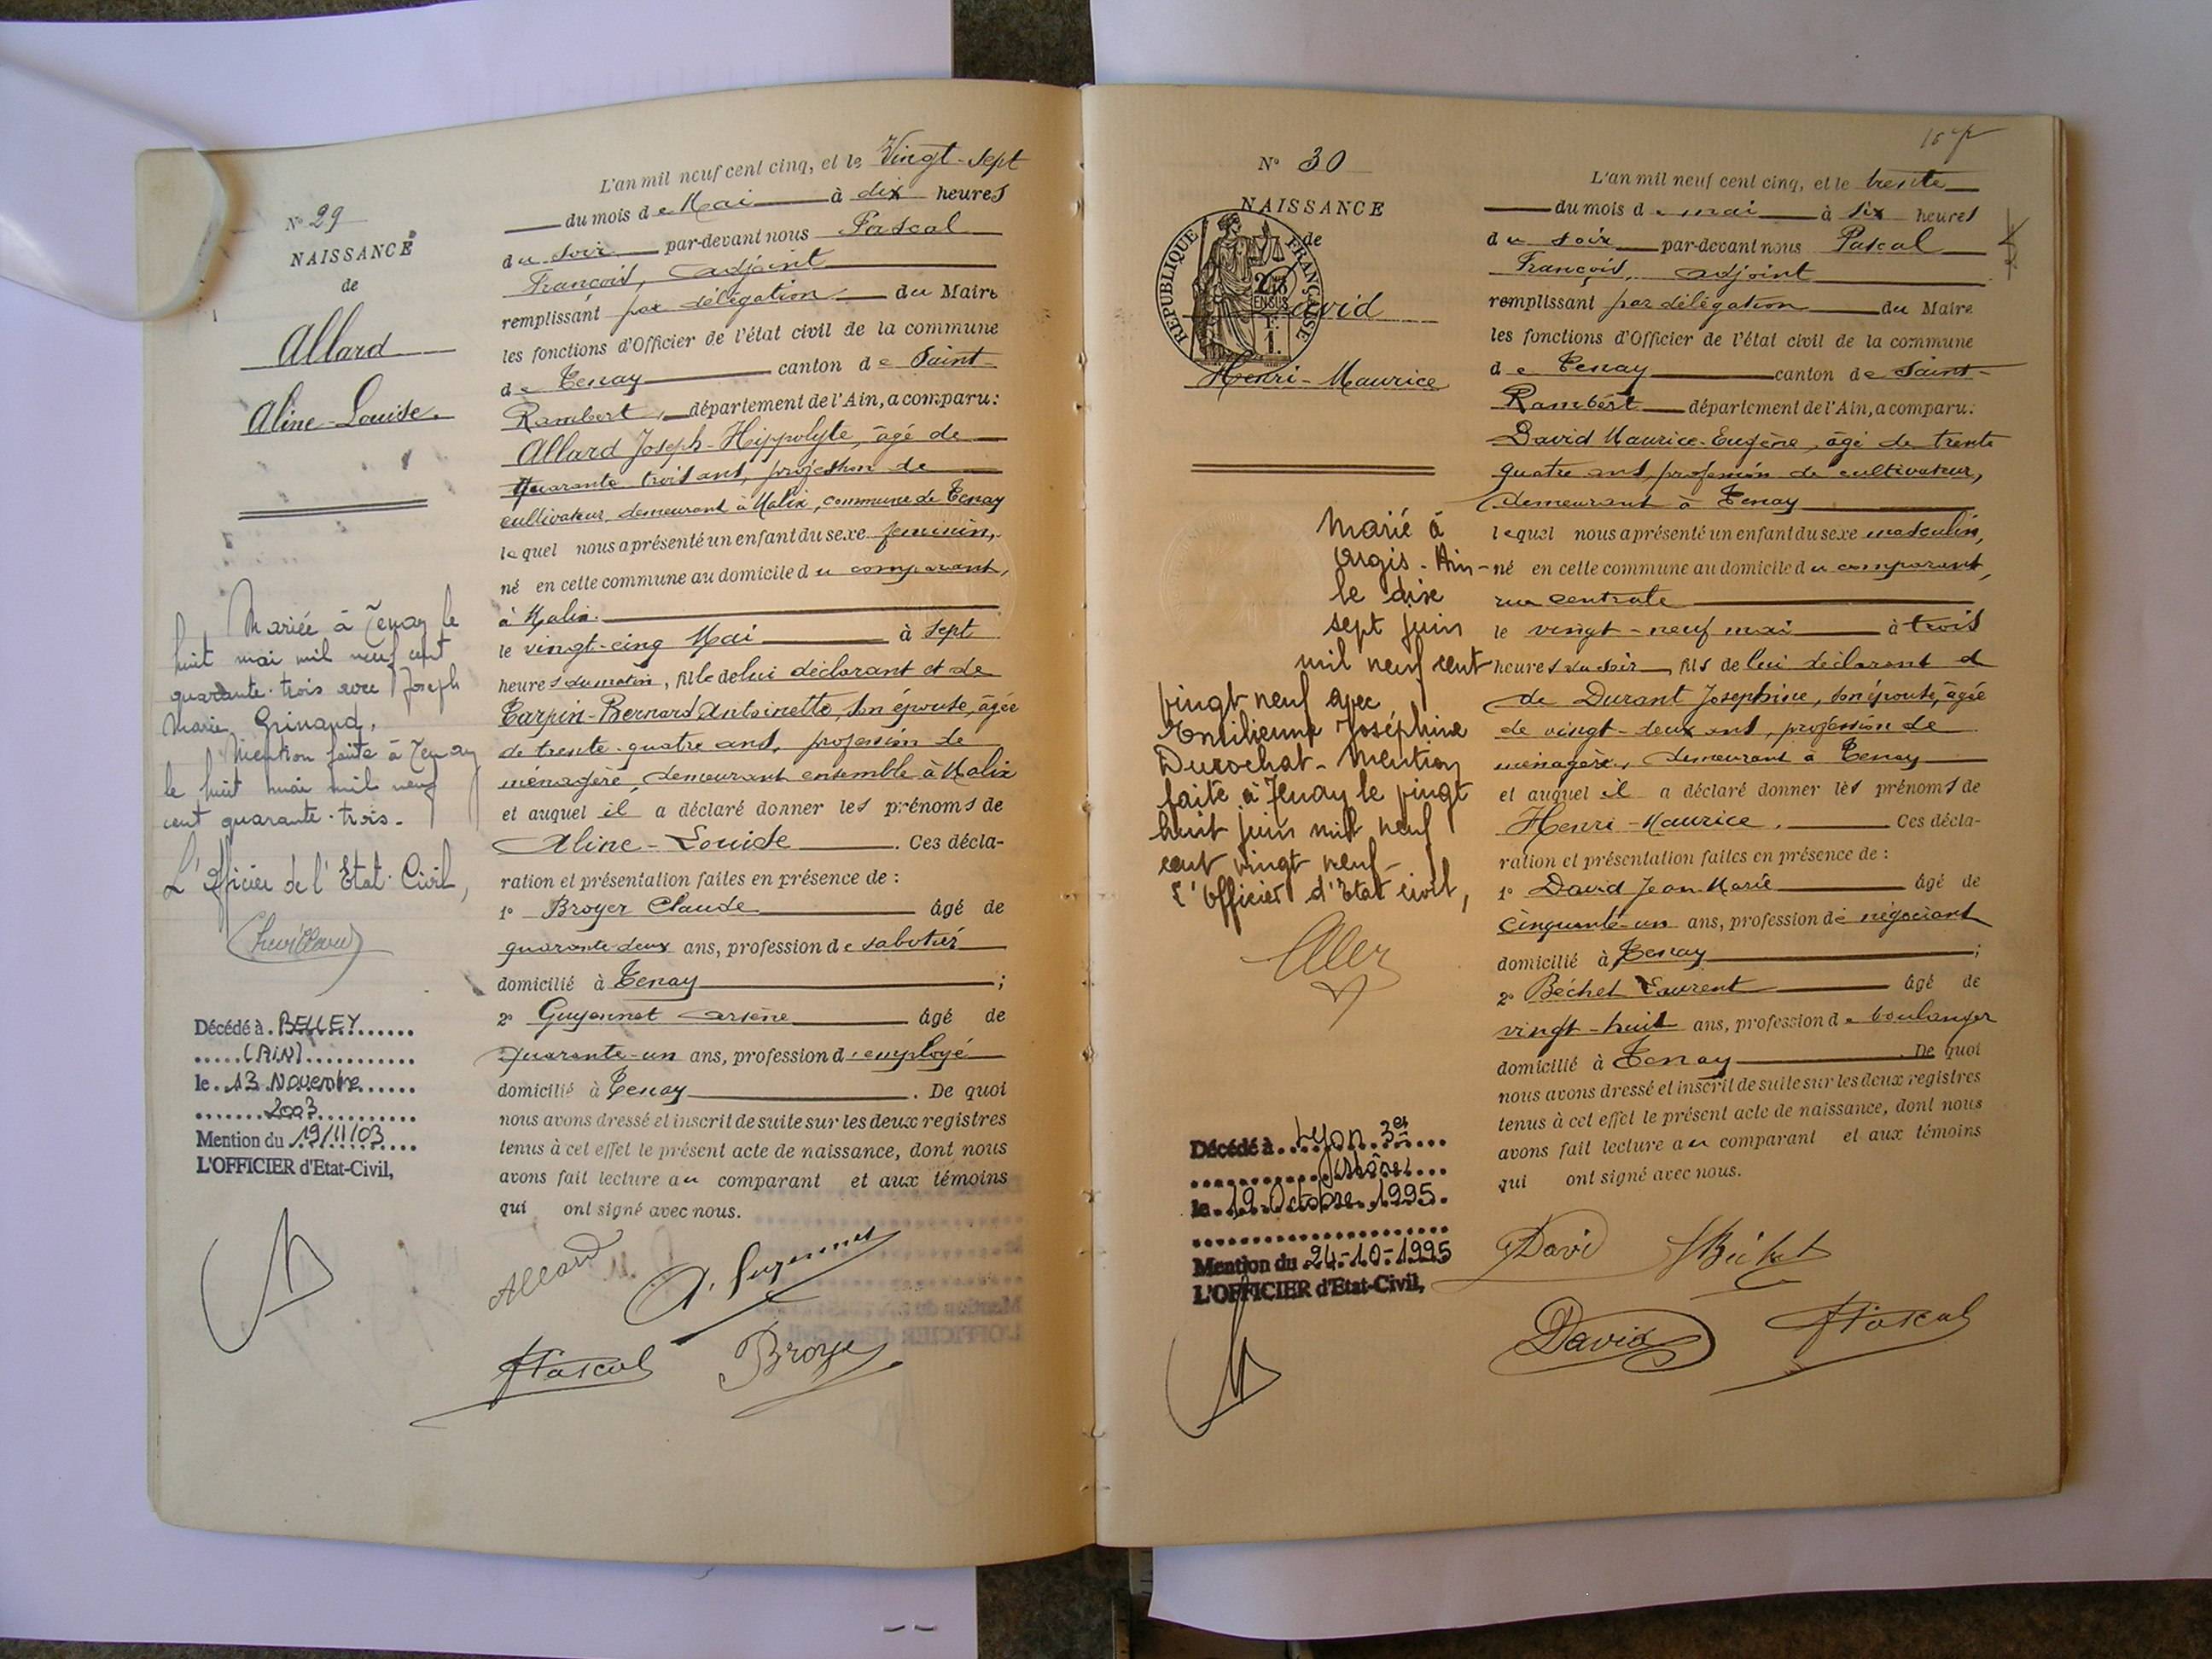 N° 29
NAISSANCE
de
Allard
Aline-Louise.
Mariée à Tenay le
huit mai mil neuf cent
quarante-trois avec Joseph
Marie Grinand.
Mention faite à Tenay
le huit mai mil neuf
cent quarante-trois.
L'Officier de l'Etat-Civil,
Décédé à BELLEY
(AIN)
le 13 Novembre
2003
Mention du 19/11/03
L'OFFICIER d'Etat-Civil,
L'an mil neuf cent cinq, et le Vingt-sept
du mois de Mai à dix heures
du soir par-devant nous Pascal
François, adjoint
remplissant par délégation du Maire
les fonctions d'Officier de l'état civil de la commune
de Tenay canton de Saint-
Rambert, département de l'Ain, a comparu:
Allard Joseph-Hippolyte, âgé de
quarante trois ans, profession de
cultivateur, demeurant à Malix, commune de Tenay
lequel nous a présenté un enfant du sexe féminin,
né en cette commune au domicile du comparant,
à Malix.
le vingt-cinq Mai à sept
heures du matin, fille de lui déclarant et de
Carpin-Bernard Antoinette, son épouse, âgée
de trente-quatre ans, profession de
ménagère, demeurant ensemble à Malix
et auquel il a déclaré donner les prénoms de
Aline-Louise. Ces décla-
ration et présentation faites en présence de :
1° Broyer Claude âgé de
quarante deux ans, profession de sabotier
domicilié à Tenay ;
2° Guyennet Arsène âgé de
quarante-un ans, profession d'employé
domicilié à Tenay. De quoi
nous avons dressé et inscrit de suite sur les deux registres
tenus à cet effet le présent acte de naissance, dont nous
avons fait lecture au comparant et aux témoins
qui ont signé avec nous.
Allard
A. Guyennet
Pascal
Broyer
N° 30
NAISSANCE
de
REPUBLIQUE FRANÇAISE
David
Henri-Maurice
Marié à
Argis-Ain-
le dix
sept juin
mil neuf cent
vingt-neuf avec
Emilienne Joséphine
Durochat-Mention
faite à Tenay le vingt
huit juin mil neuf
cent vingt neuf-
L'Officier d'Etat civil,
Décédé à Lyon 3e
(Rhône)
le 19 Octobre 1995.
Mention du 24-10-1995
L'OFFICIER d'Etat-Civil,
L'an mil neuf cent cinq, et le trente
du mois de mai à six heures
du soir par-devant nous Pascal
François, adjoint
remplissant par délégation du Maire
les fonctions d'Officier de l'état civil de la commune
de Tenay canton de Saint-
Rambert département de l'Ain, a comparu:
David Maurice-Eugène, âgé de trente
quatre ans, profession de cultivateur,
demeurant à Tenay
lequel nous a présenté un enfant du sexe masculin,
né en cette commune au domicile du comparant,
rue centrale
le vingt-neuf mai à trois
heures du soir, fils de lui déclarant et
de Durant Josephine, son épouse, âgée
de vingt-deux ans, profession de
ménagère, demeurant à Tenay
et auquel il a déclaré donner les prénoms de
Henri-Maurice. Ces décla-
ration et présentation faites en présence de :
1° David Jean-Marie âgé de
cinquante-un ans, profession de négociant
domicilié à Tenay ;
2° Béchet Laurent âgé de
vingt-huit ans, profession de boulanger
domicilié à Tenay. De quoi
nous avons dressé et inscrit de suite sur les deux registres
tenus à cet effet le présent acte de naissance, dont nous
avons fait lecture au comparant et aux témoins
qui ont signé avec nous.
David
Béchet
David
Pascal